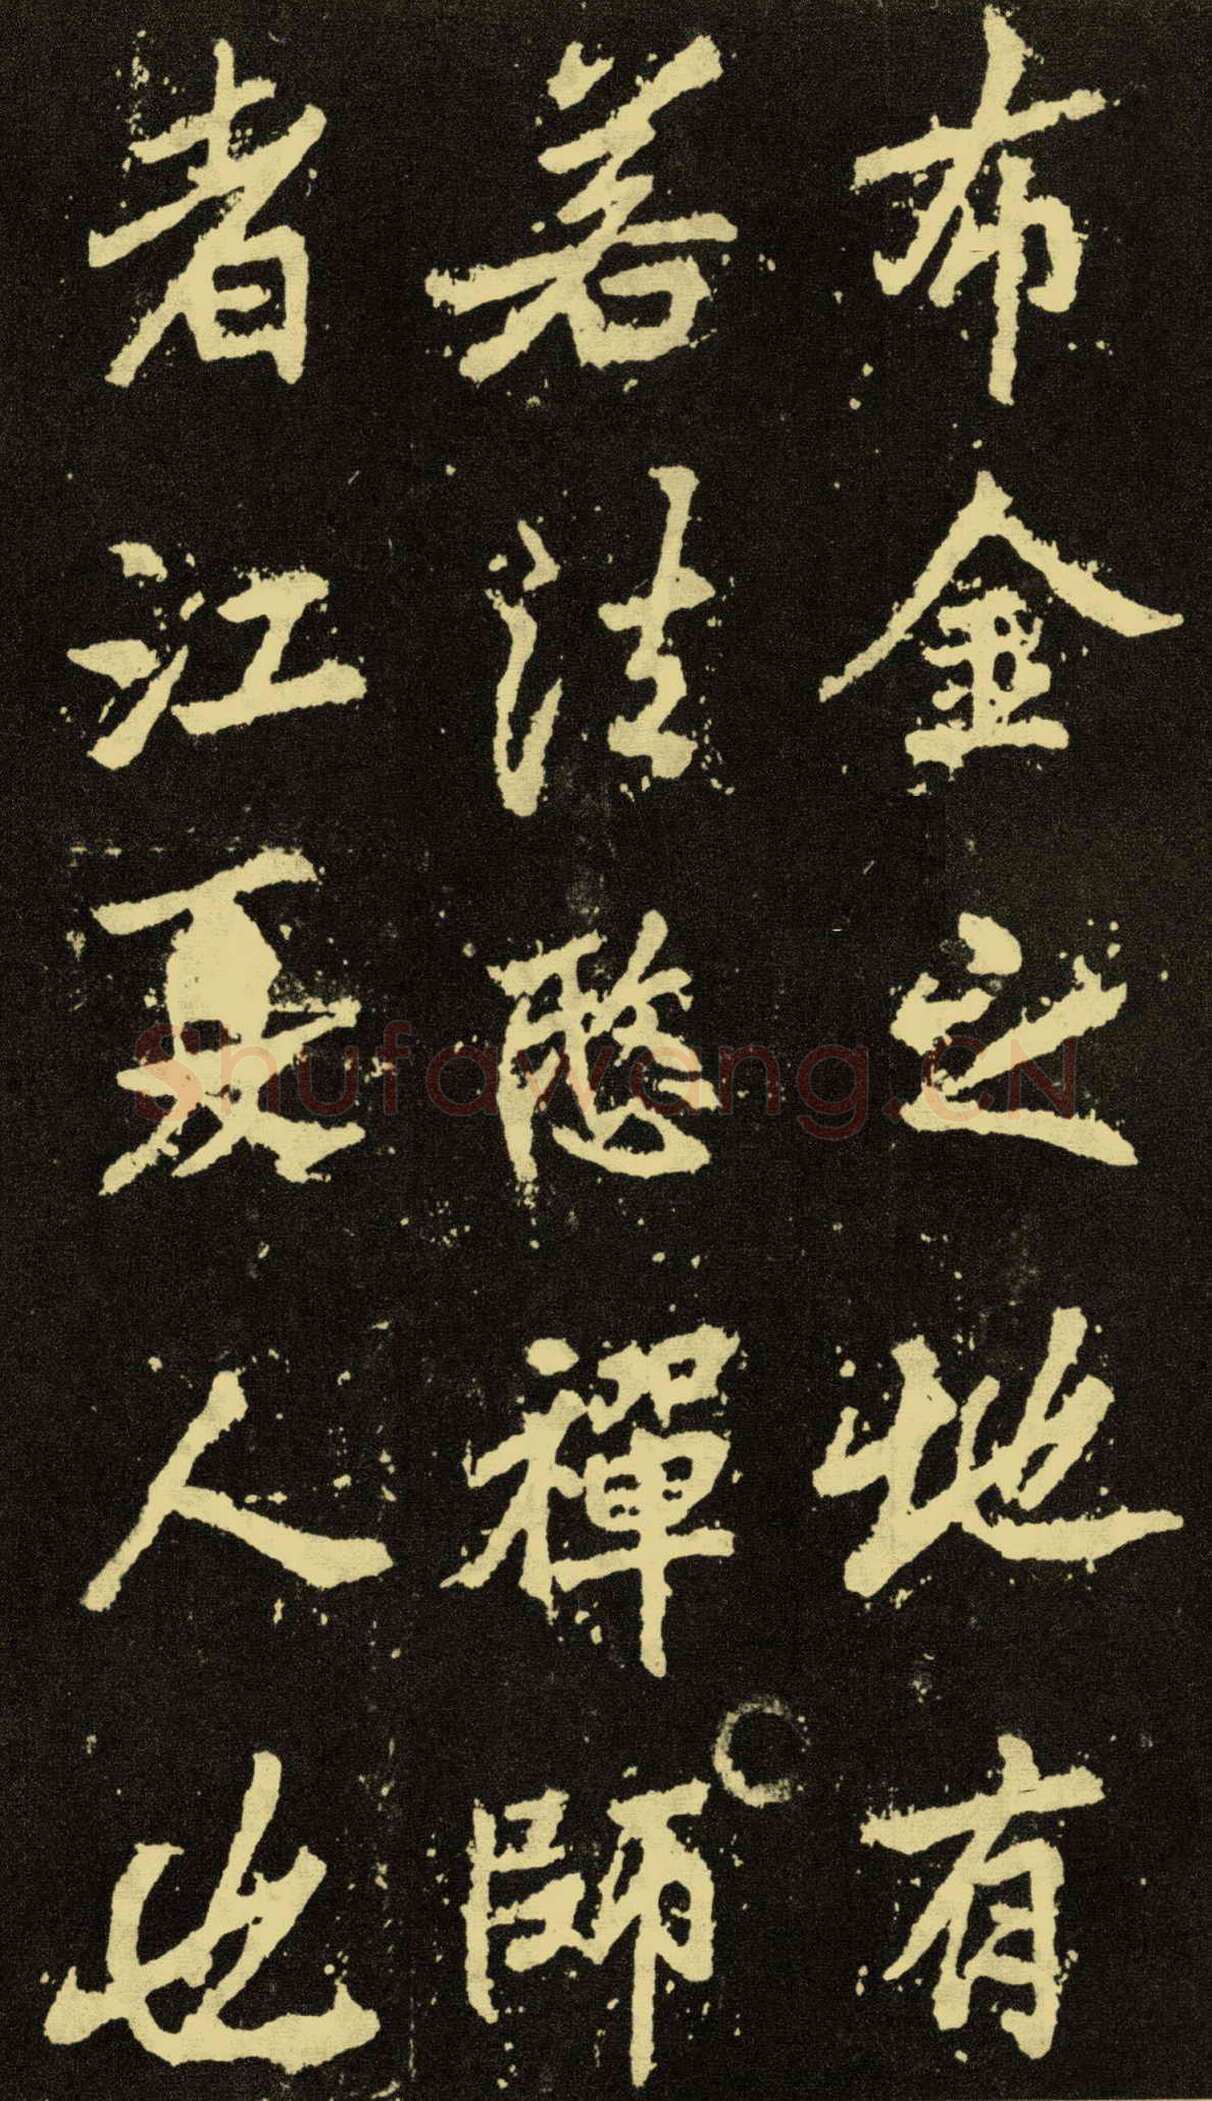 布金之地有
若法愍禪師
者江夏人也
Shufawang.CN